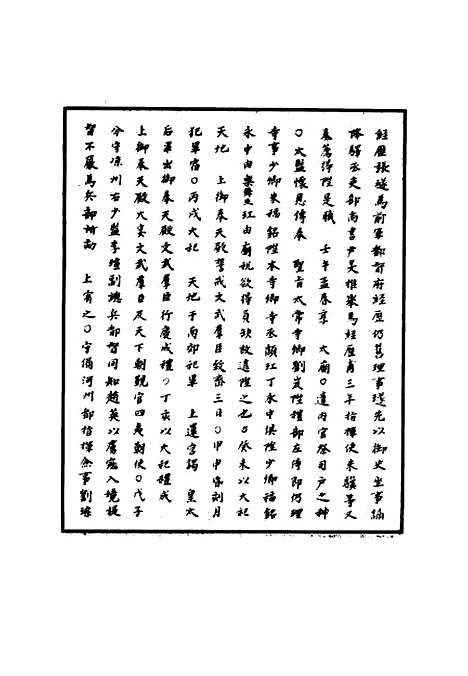 經歷張璲爲前軍都督府經歷仍舊理事璲先以御史坐事謫
降驛丞吏部尚書尹旻推舉爲經歷甫三年指揮使朱驥等又
爲薦得陞是職　壬午孟春享　太廟○遣內官祭司户之神
○太監懷恩傳奉　聖旨太常寺卿劉岌陞禮部左侍郎仍理
寺事少卿朱福銘陞本寺卿寺丞顧玒丁永中俱陞少卿福銘
永中由樂舞生玒由廟祝欲得員缺故遞陞之也○癸未以大祀
天地　上御奉天殿誓戒文武羣臣致齋三日○甲申昏刻月
犯畢宿○丙戌大祀　天地于南郊祀畢　上還宮謁　皇太
后畢出御奉天殿文武羣臣行慶成禮○丁亥以大祀禮成
上御奉天殿大宴文武羣臣及天下朝覲官四夷朝使○戊子
分守凉州右少監李瑄副總兵都督同知趙英以虜寇入境提
督不嚴爲兵部所劾　上宥之○守備河州都指揮僉事劉璩